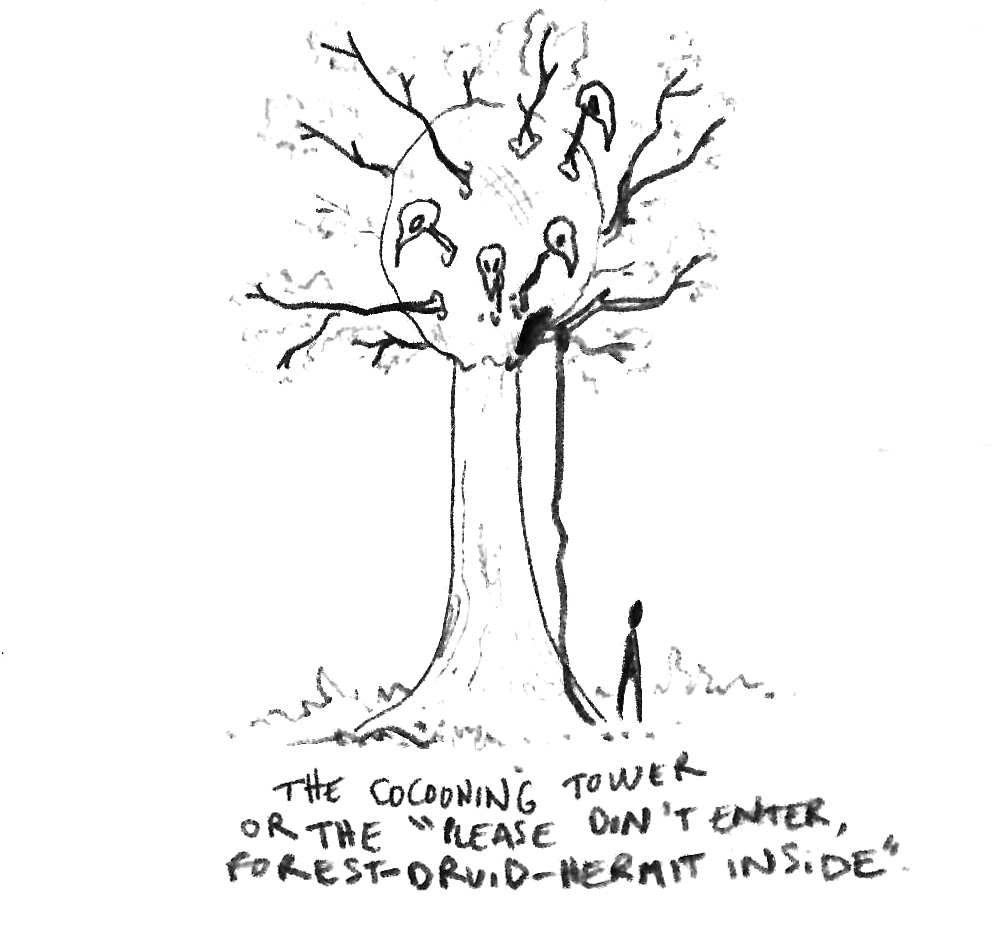 THE COCOONING TOWER
OR THE "PLEASE DON'T ENTER,
FOREST-DRUID-HERMIT INSIDE".